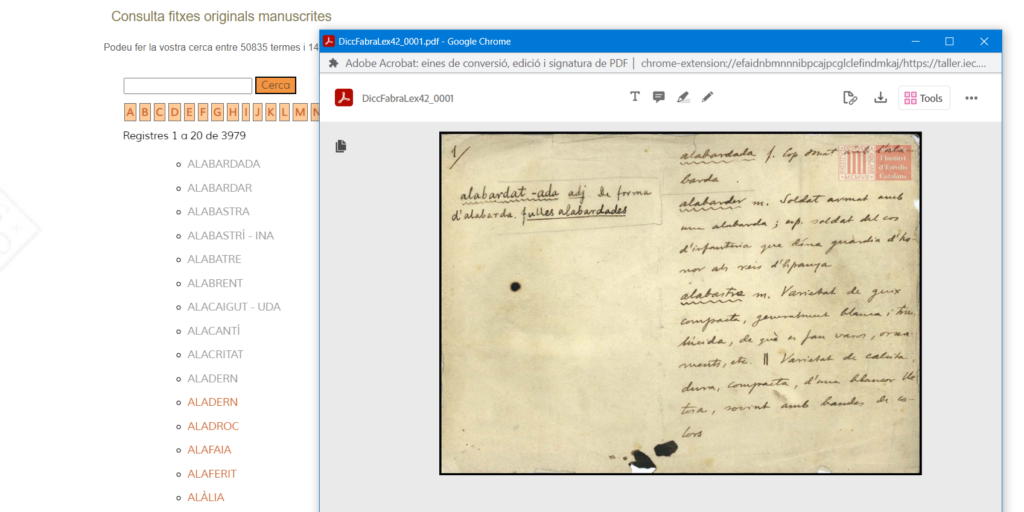 Consulta fitxes originals manuscrites
Podeu fer la vostra cerca entre 50835 termes i 14
Cerca
A B C D E F G H I J K L M N
Registres 1 a 20 de 3979
ALABARDADA
ALABARDAR
ALABASTRA
ALABASTRÍ - INA
ALABATRE
ALABRENT
ALACAIGUT - UDA
ALACANTÍ
ALACRITAT
ALADERN
ALADERN
ALADROC
ALAFAIA
ALAFERIT
ALÀLIA
DiccFabraLex42_0001.pdf - Google Chrome
Adobe Acrobat: eines de conversió, edició i signatura de PDF | chrome-extension://efaidnbmnnnibpcajpcglclefindmkaj/https://taller.iec....
DiccFabraLex42_0001
Tools
1/
alabardat -ada adj de forma
d'alabarda. fulles alabardades
alabardada f. Cop donat amb l'ala-
barda.
alabarder m. Soldat armat amb
una alabarda; esp. soldat del cos
d'infanteria que dóna guardia d'ho-
nor als reis d'Espanya
alabastre m. Varietat de guix
compacta, generalment blanca i trans-
lúcida, de què es fan vasos, orna-
ments, etc. || Varietat de calcita,
dura, compacta, d'una blancor
sovint amb bandes de co-
lors
Institut
d'Estudis
Catalans